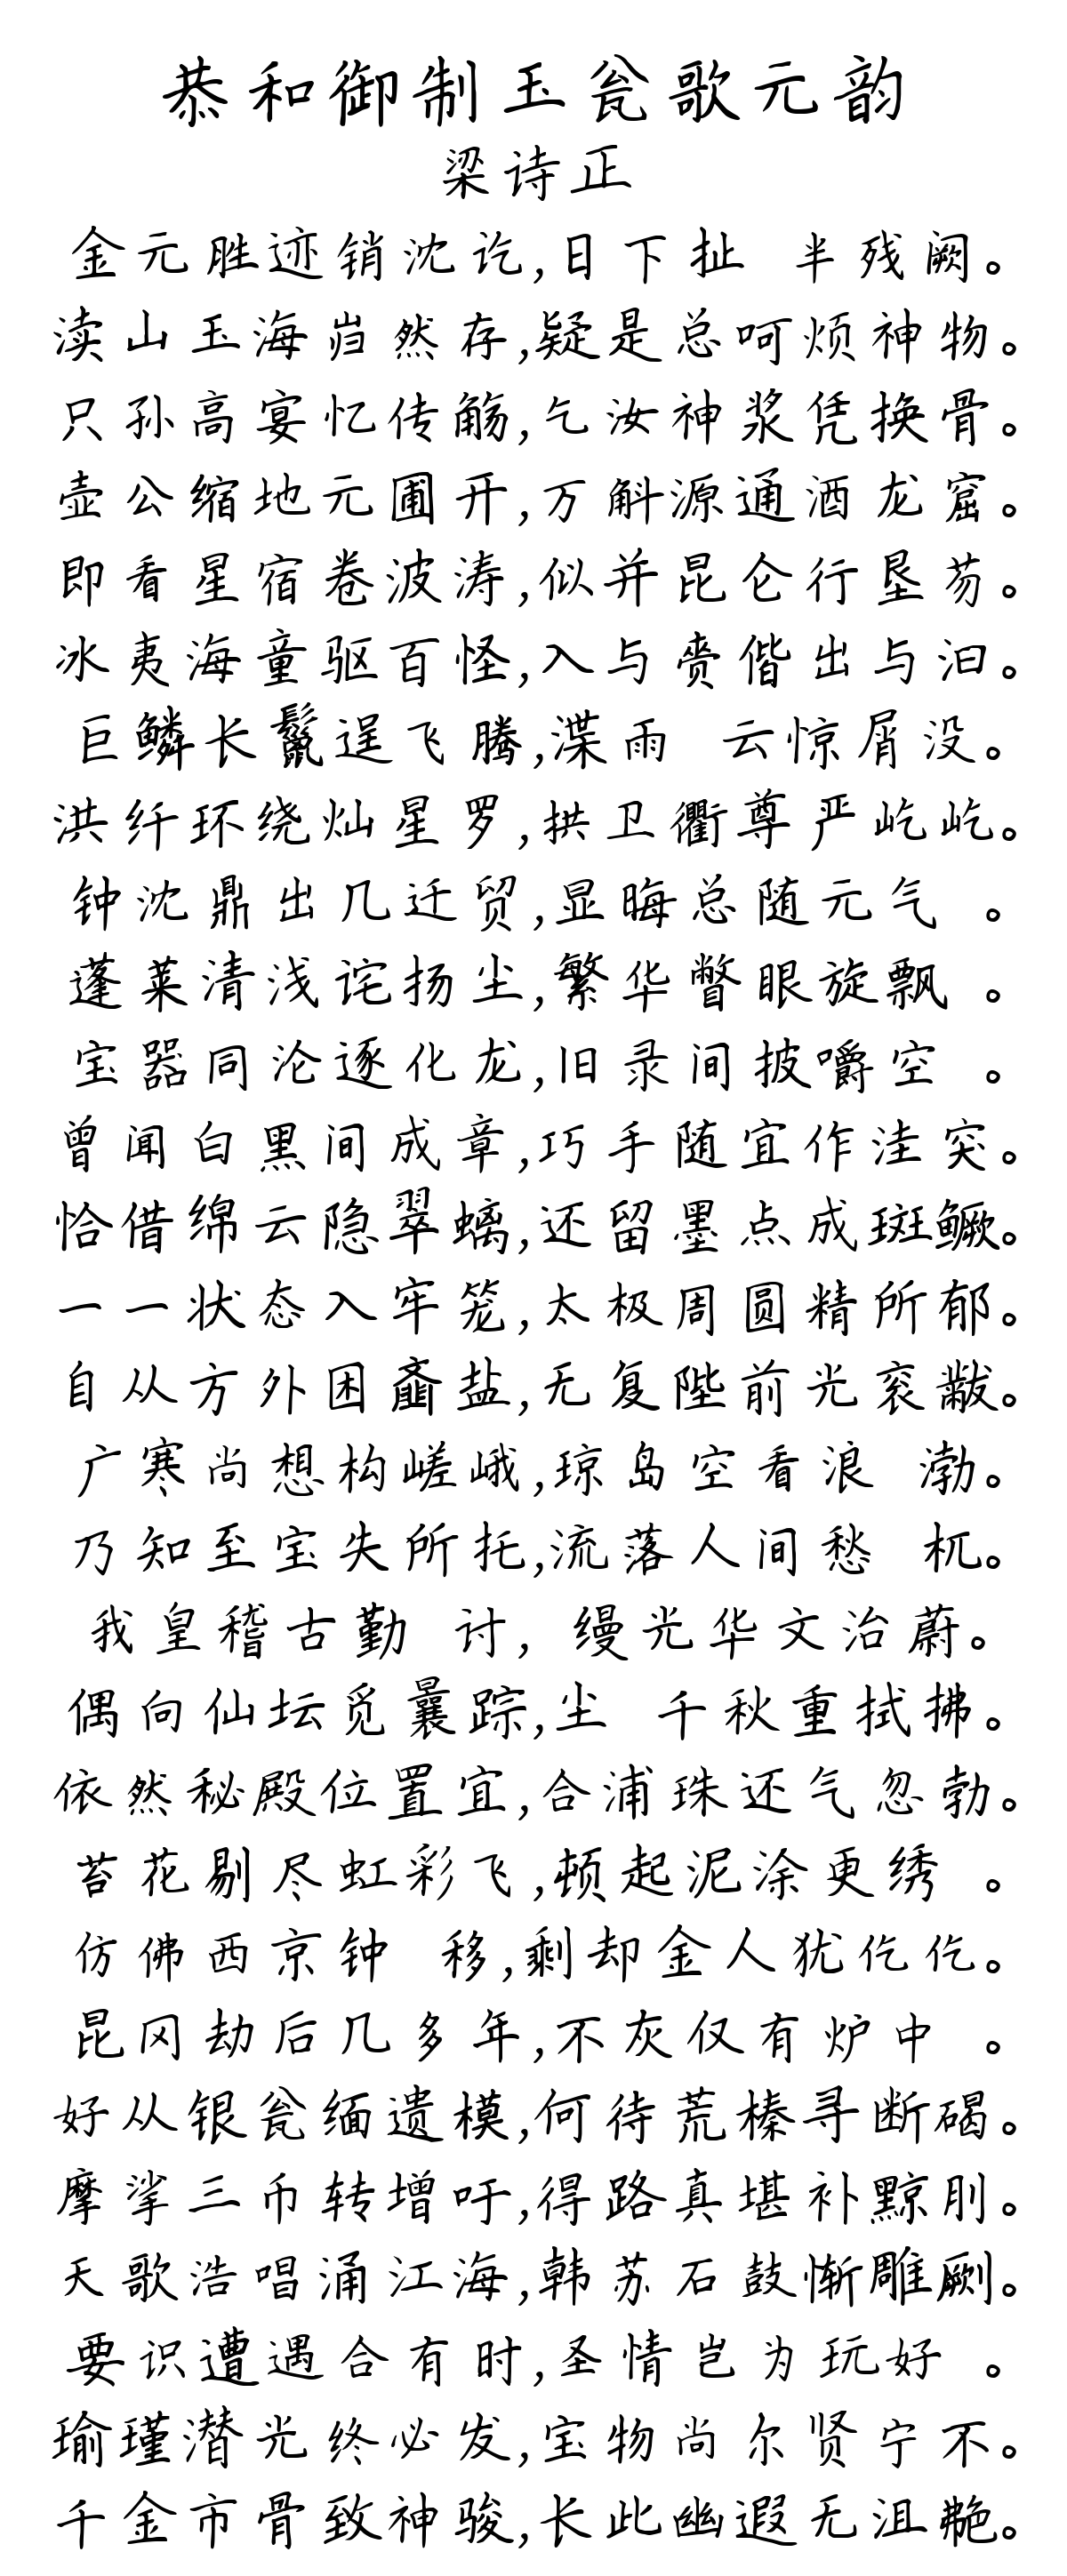 恭和御制玉瓮歌元韵
梁诗正
金元胜迹销沈讫,日下扯 半残阙。
渎山玉海岿然存,疑是总呵烦神物。
只孙高宴忆传觞,乞汝神浆凭换骨。
壶公缩地元圃开,万斛源通酒龙窟。
即看星宿卷波涛,似并昆仑行垦芴。
冰夷海童驱百怪,入与赍偕出与汩。
巨鳞长鬣逞飞腾,渫雨 云惊屑没。
洪纤环绕灿星罗,拱卫衢尊严屹屹。
钟沈鼎出几迁贸,显晦总随元气 。
蓬莱清浅诧扬尘,繁华瞥眼旋飘 。
宝器同沦逐化龙,旧录间披嚼空 。
曾闻白黑间成章,巧手随宜作洼突。
恰借绵云隐翠螭,还留墨点成斑鳜。
一一状态入牢笼,太极周圆精所郁。
自从方外困齑盐,无复陛前光衮黻。
广寒尚想构嵯峨,琼岛空看浪 渤。
乃知至宝失所托,流落人间愁 杌。
我皇稽古勤 讨, 缦光华文治蔚。
偶向仙坛觅曩踪,尘 千秋重拭拂。
依然秘殿位置宜,合浦珠还气忽勃。
苔花剔尽虹彩飞,顿起泥涂更绣 。
仿佛西京钟 移,剩却金人犹仡仡。
昆冈劫后几多年,不灰仅有炉中 。
好从银瓮缅遗模,何待荒榛寻断碣。
摩挲三币转增吁,得路真堪补黥刖。
天歌浩唱涌江海,韩苏石鼓惭雕劂。
要识遭遇合有时,圣情岂为玩好 。
瑜瑾潜光终必发,宝物尚尔贤宁不。
千金市骨致神骏,长此幽遐无沮艴。